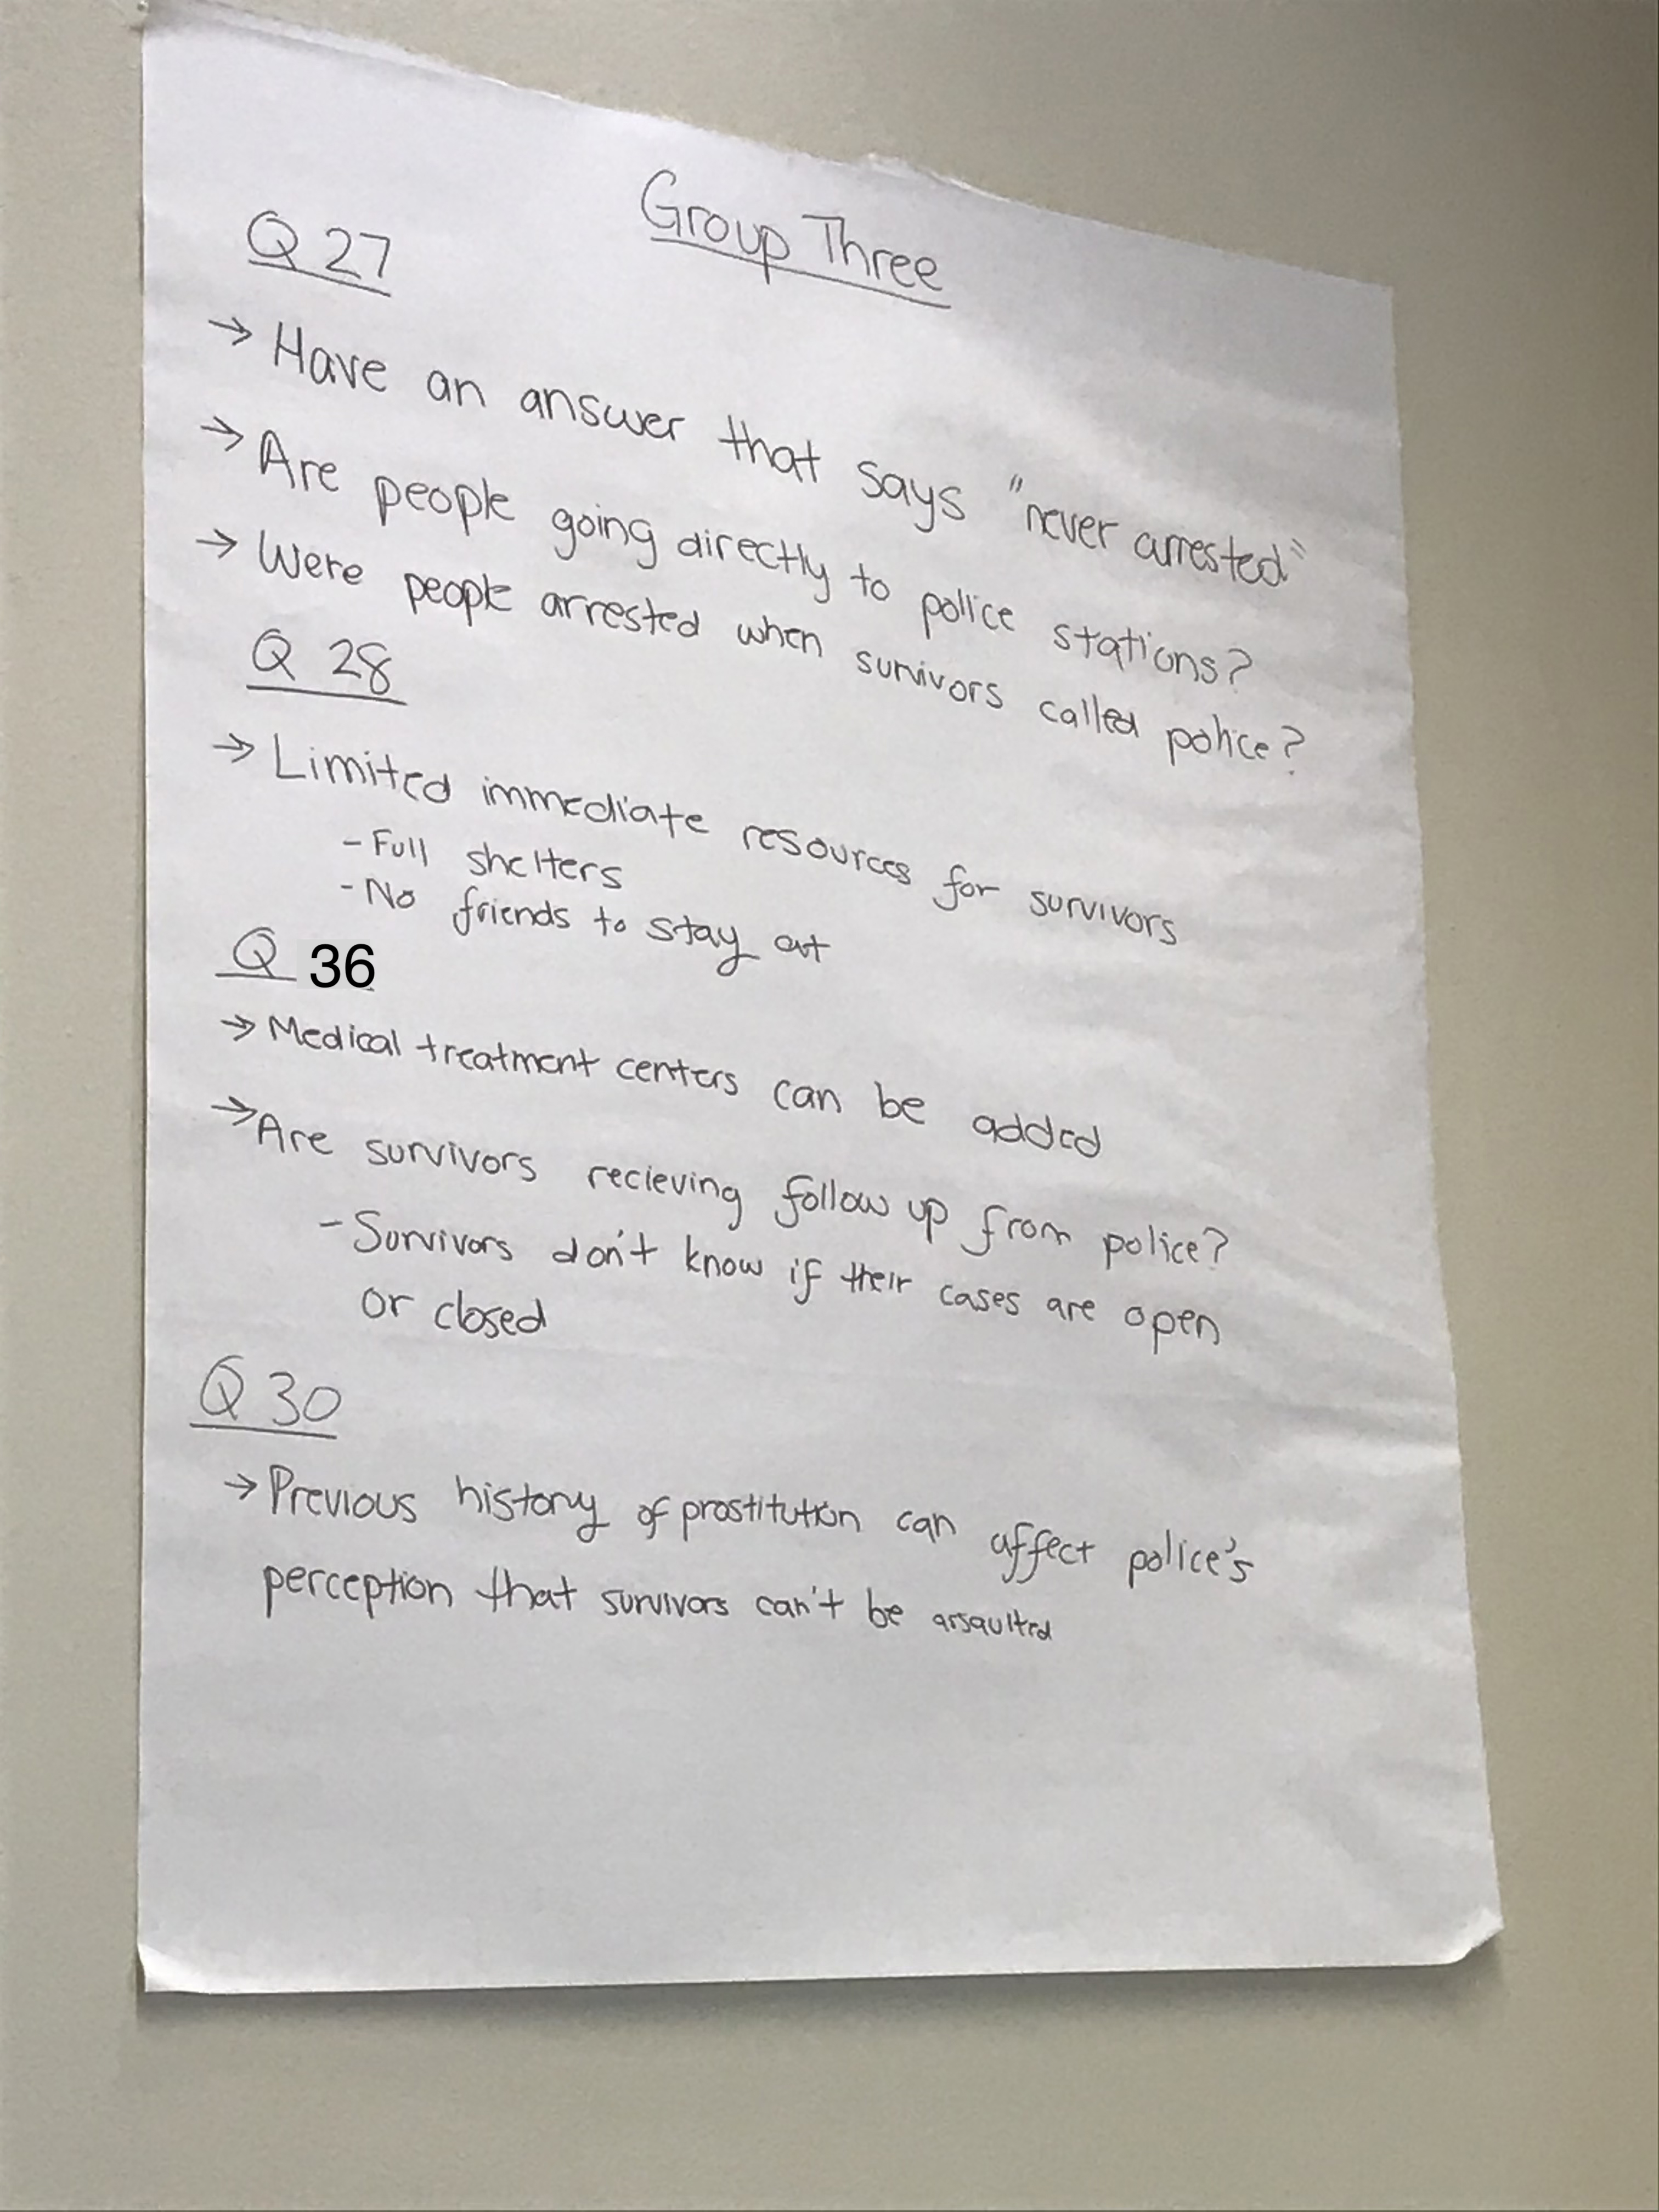 Group Three
Q 27
→ Have an answer that says "never arrested"
→ Are people going directly to police stations?
→ Were people arrested when survivors called police?
Q 28
→ Limited immediate resources for survivors
- Full shelters
- No friends to stay at
Q 36
→ Medical treatment centers can be added
→ Are survivors recieving follow up from police?
- Survivors don't know if their cases are open
or closed
Q 30
→ Previous history of prostitution can affect police's
perception that survivors can't be assaulted